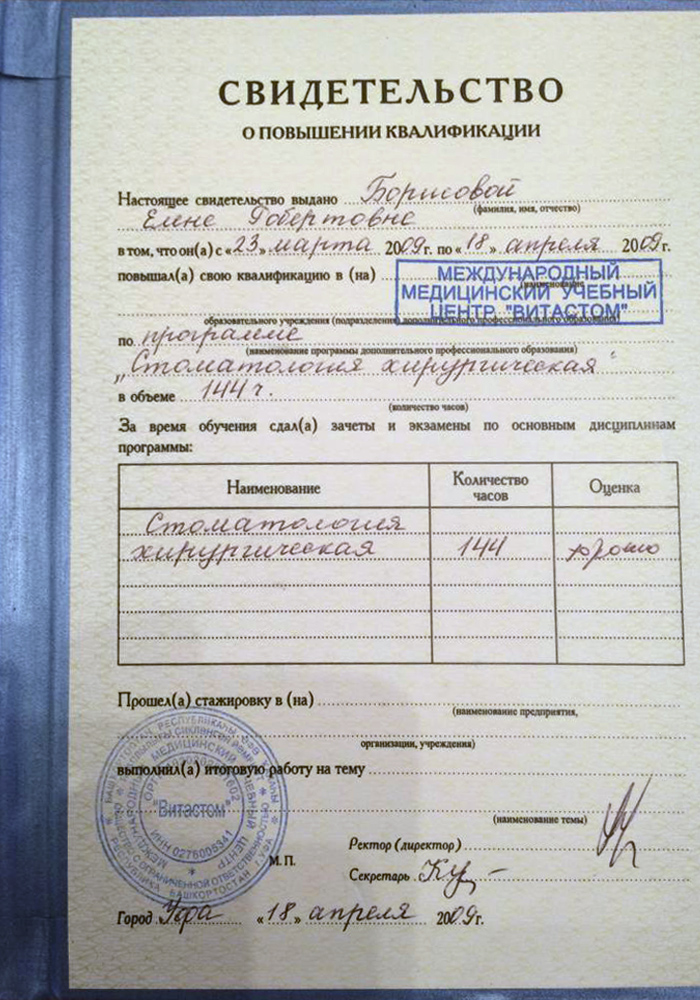 СВИДЕТЕЛЬСТВО
О ПОВЫШЕНИИ КВАЛИФИКАЦИИ
Настоящее свидетельство выдано Борисовой
(фамилия, имя, отчество)
Елене Робертовне
в том, что он(а) с «23» марта 2009 г. по «18» апреля 2009 г.
повышал(а) свою квалификацию в (на)
(наименование
МЕЖДУНАРОДНЫЙ
МЕДИЦИНСКИЙ УЧЕБНЫЙ
ЦЕНТР "ВИТАСТОМ"
образовательного учреждения (подразделения) дополнительного профессионального образования)
по программе
(наименование программы дополнительного профессионального образования)
„Стоматология хирургическая"
в объеме 144 ч.
(количество часов)
За время обучения сдал(а) зачеты и экзамены по основным дисциплинам
программы:
Наименование Количество часов Оценка
Стоматология
хирургическая 144 хорошо
Прошел(а) стажировку в (на)
(наименование предприятия,
организации, учреждения)
выполнил(а) итоговую работу на тему
(наименование темы)
"Витастом"
МЕДИЦИНСКИЙ УЧЕБНЫЙ ЦЕНТР
РЕСПУБЛИКА БАШКОРТОСТАН Г.УФА
М.П.
Ректор (директор)
Секретарь
Город Уфа «18» апреля 2009г.